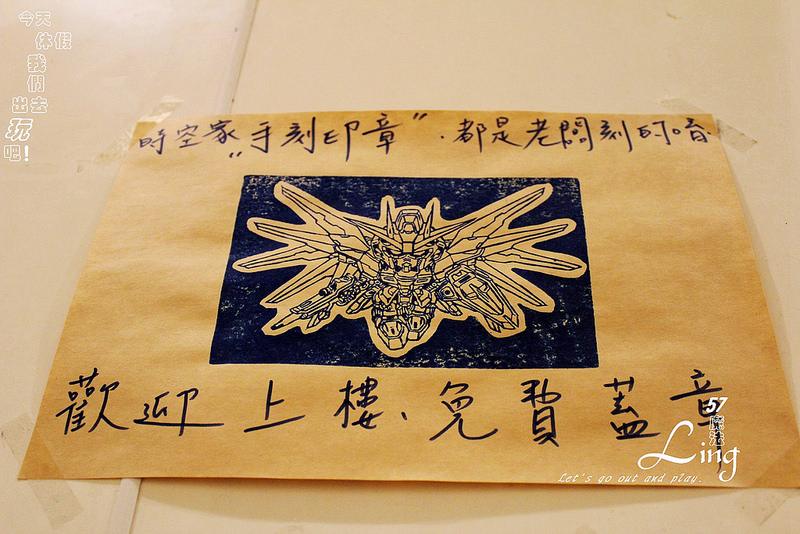 今天
休假
我
們
出去
玩
吧!
時空家"手刻印章"．都是老闆刻的唷
歡迎上樓、免費蓋章
57
魔法
Ling
Let's go out and play.